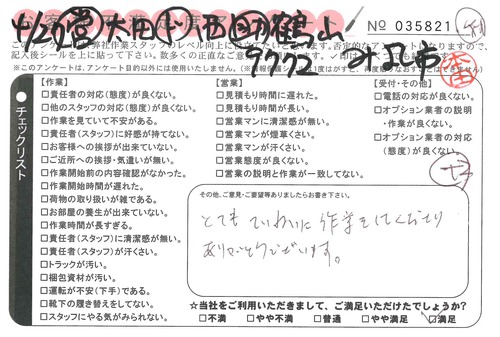 4/26 営 大田 中 小西 助 鶴山
№ 035821
このアンケートは弊社作業スタッフのレベル向上に役立てたいと思います。お忙しい中、
記入後シールを上に貼って下さい。数多くの正直なご意見
※このアンケートは、アンケート目的以外には使用いたしません。
チェックリスト
【作業】
□責任者の対応(態度)が良くない。
□他のスタッフの対応(態度)が良くない。
□作業を見ていて不安がある。
□責任者(スタッフ)に好感が持てない。
□お客様への挨拶が出来ていない。
□ご近所への挨拶・気遣いが無い。
□作業開始前の内容確認がなかった。
□作業開始時間が遅れた。
□荷物の取り扱いが雑である。
□お部屋の養生が出来ていない。
□作業時間が長すぎる。
□責任者(スタッフ)に清潔感が無い。
□責任者(スタッフ)が汗くさい。
□トラックが汚い。
□梱包資材が汚い。
□運転が不安(下手)である。
□靴下の履き替えをしてない。
□スタッフにやる気がみられない。
【営業】
□見積もり時間に遅れた。
□見積もり時間が長い。
□営業マンに清潔感が無い。
□営業マンが煙草くさい。
□営業マンが汗くさい。
□営業態度が良くない。
□営業の説明と作業が一致してない。
【受付・その他】
□電話の対応が良くない。
□オプション業者の説明
・作業が良くない。
□オプション業者の対応
(態度)が良くない。
その他、ご意見・ご要望等ありましたらお書き下さい。
とても ていねいに 作業をしてくださり
ありがとうございます。
☆当社をご利用いただきまして、ご満足いただけたでしょうか?
□不満 □やや不満 □普通 □やや満足 ☑満足